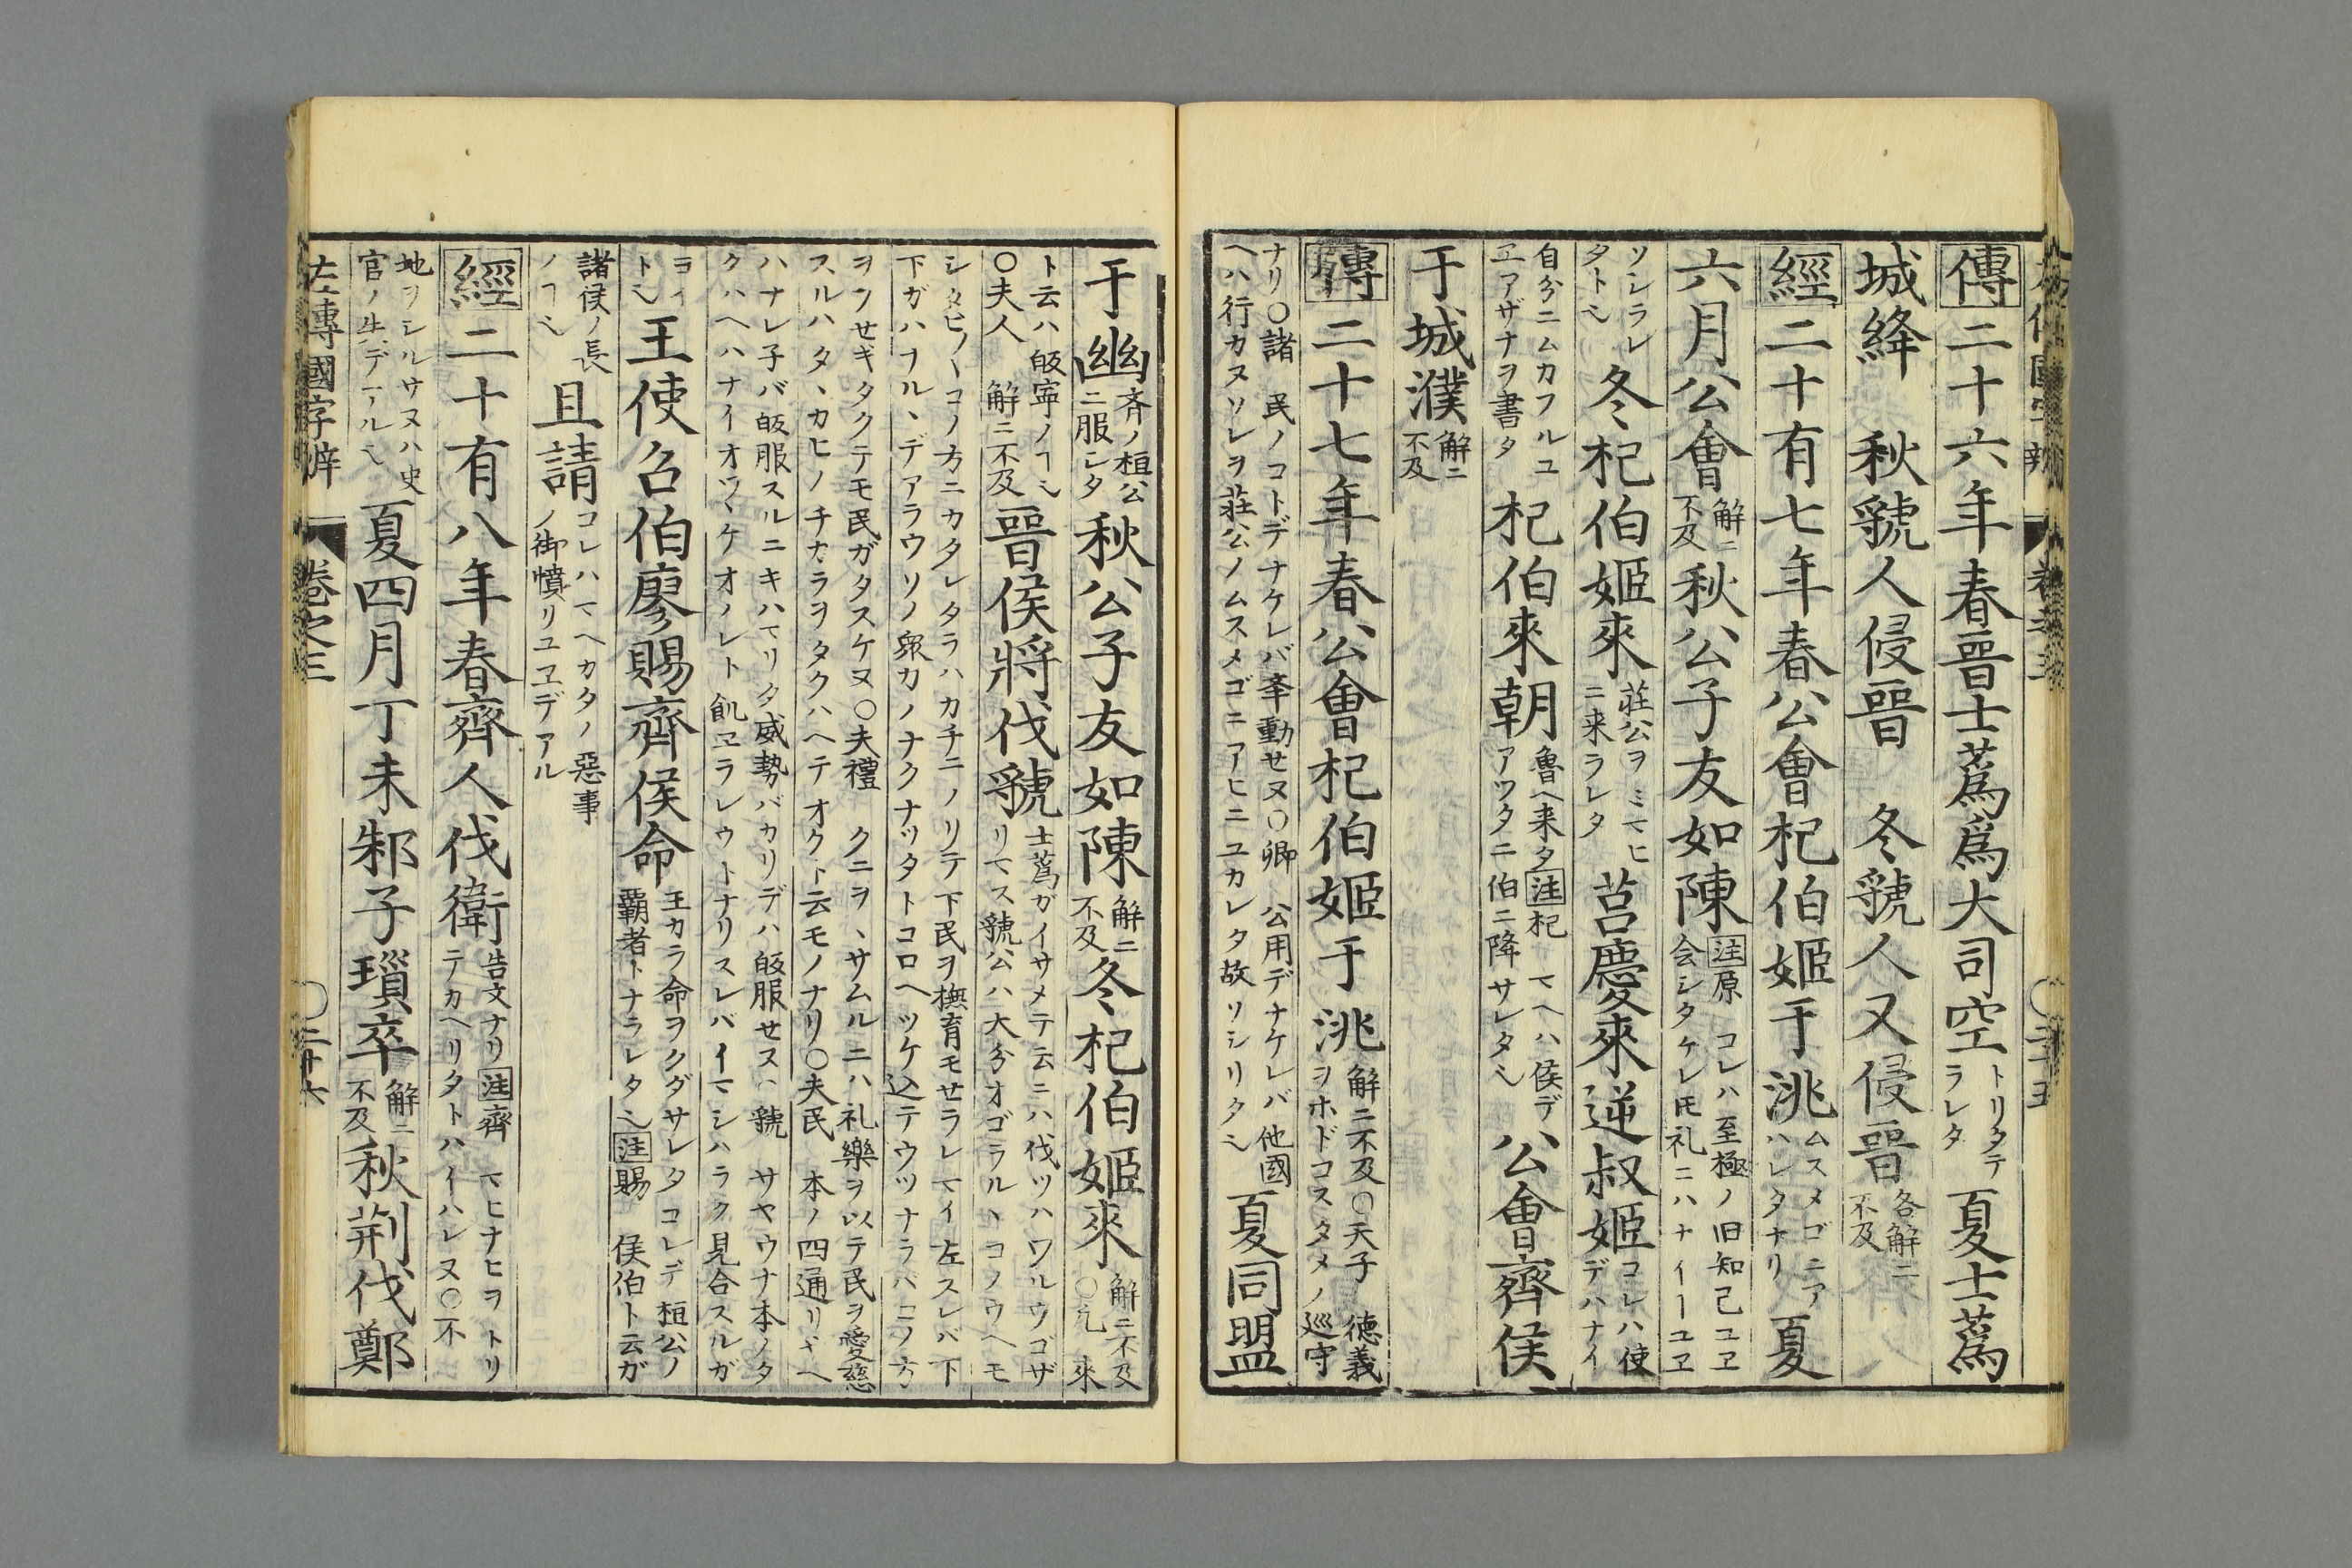 傳二十六年春晉士蔿爲大司空トリタテラレタ夏士蔿
城絳　秋虢人侵晉　冬虢人又侵晉各解ニ不及
經二十有七年春公會杞伯姬于洮ムスメゴニアハレタナリ夏
六月公會解ニ不及秋公子友如陳注原　コレハ至極ノ旧知己ユヱ会シタケレ𪜈礼ニハナイーユヱ
ソシラレタト也冬杞伯姬來莊公ヲミマヒニ来ラレタ莒慶來逆叔姬コレハ使デハナイ
自分ニムカフルユヱアザナヲ書タ杞伯來朝魯ヘ来タ注杞　マヘハ侯デアツタニ伯ニ降サレタ也公會齊侯
于城濮解ニ不及
傳二十七年春公會杞伯姬于洮解ニ不及〇天子　徳義ヲホドコスタメノ巡守
ナリ〇諸　民ノコトデナケレバ挙動セヌ〇卿　公用デナケレバ他國ヘハ行カヌソレヲ莊公ノムスメゴニアヒニユカレタ故ソシリタ也夏同盟
于幽斉ノ桓公ニ服シタ秋公子友如陳解ニ不及冬杞伯姬來解ニ不及〇凡　來
ト云ハ皈寧ノヿ也〇夫人　解ニ不及晉侯將伐虢士蔿ガイサメテ云ニハ伐ツハワルウゴザリマス虢公ハ大分オゴラルヽコノウヘモ
シタビ〳〵コノ方ニカタレタラハカチニノリテ下民ヲ撫育モセラレマイ左スレバ下下ガハナルヽデアラウソノ衆カノナクナツタトコロヘツケ込テウツナラバコノ方
ヲフせギタクテモ民ガタスケヌ〇夫禮　クニヲヽサムルニハ礼樂ヲ以テ民ヲ愛慈スルハタヽカヒノチカラヲタクハヘテオクト云モノナリ〇夫民　本ノ四通リヾヘ
ハナレ子バ皈服スルニキハマリタ威勢バカリデハ皈服せヌ〇虢　サヤウナ本ノタクハヘハナイオツヾケオノレト飢ヱラレウトナリスレバイマシハラク見合スルガ
ヨイト也王使召伯廖賜齊侯命王カラ命ヲクダサレタコレデ桓公ノ覇者トナラレタ也注賜　侯伯ト云ガ
諸侯ノ長ノヿ也且請コレハマヘカタノ惡事ノ御憤リユヱデアル
經二十有八年春齊人伐衛告文ナリ注齊　マヒナヒヲトリテカヘリタトハイハレヌ〇不
地ヲシルサヌハ史官ノ失デアル也夏四月丁未邾子瑣卒解ニ不及秋荆伐鄭
左傳國字辨　卷之三　〇二十六